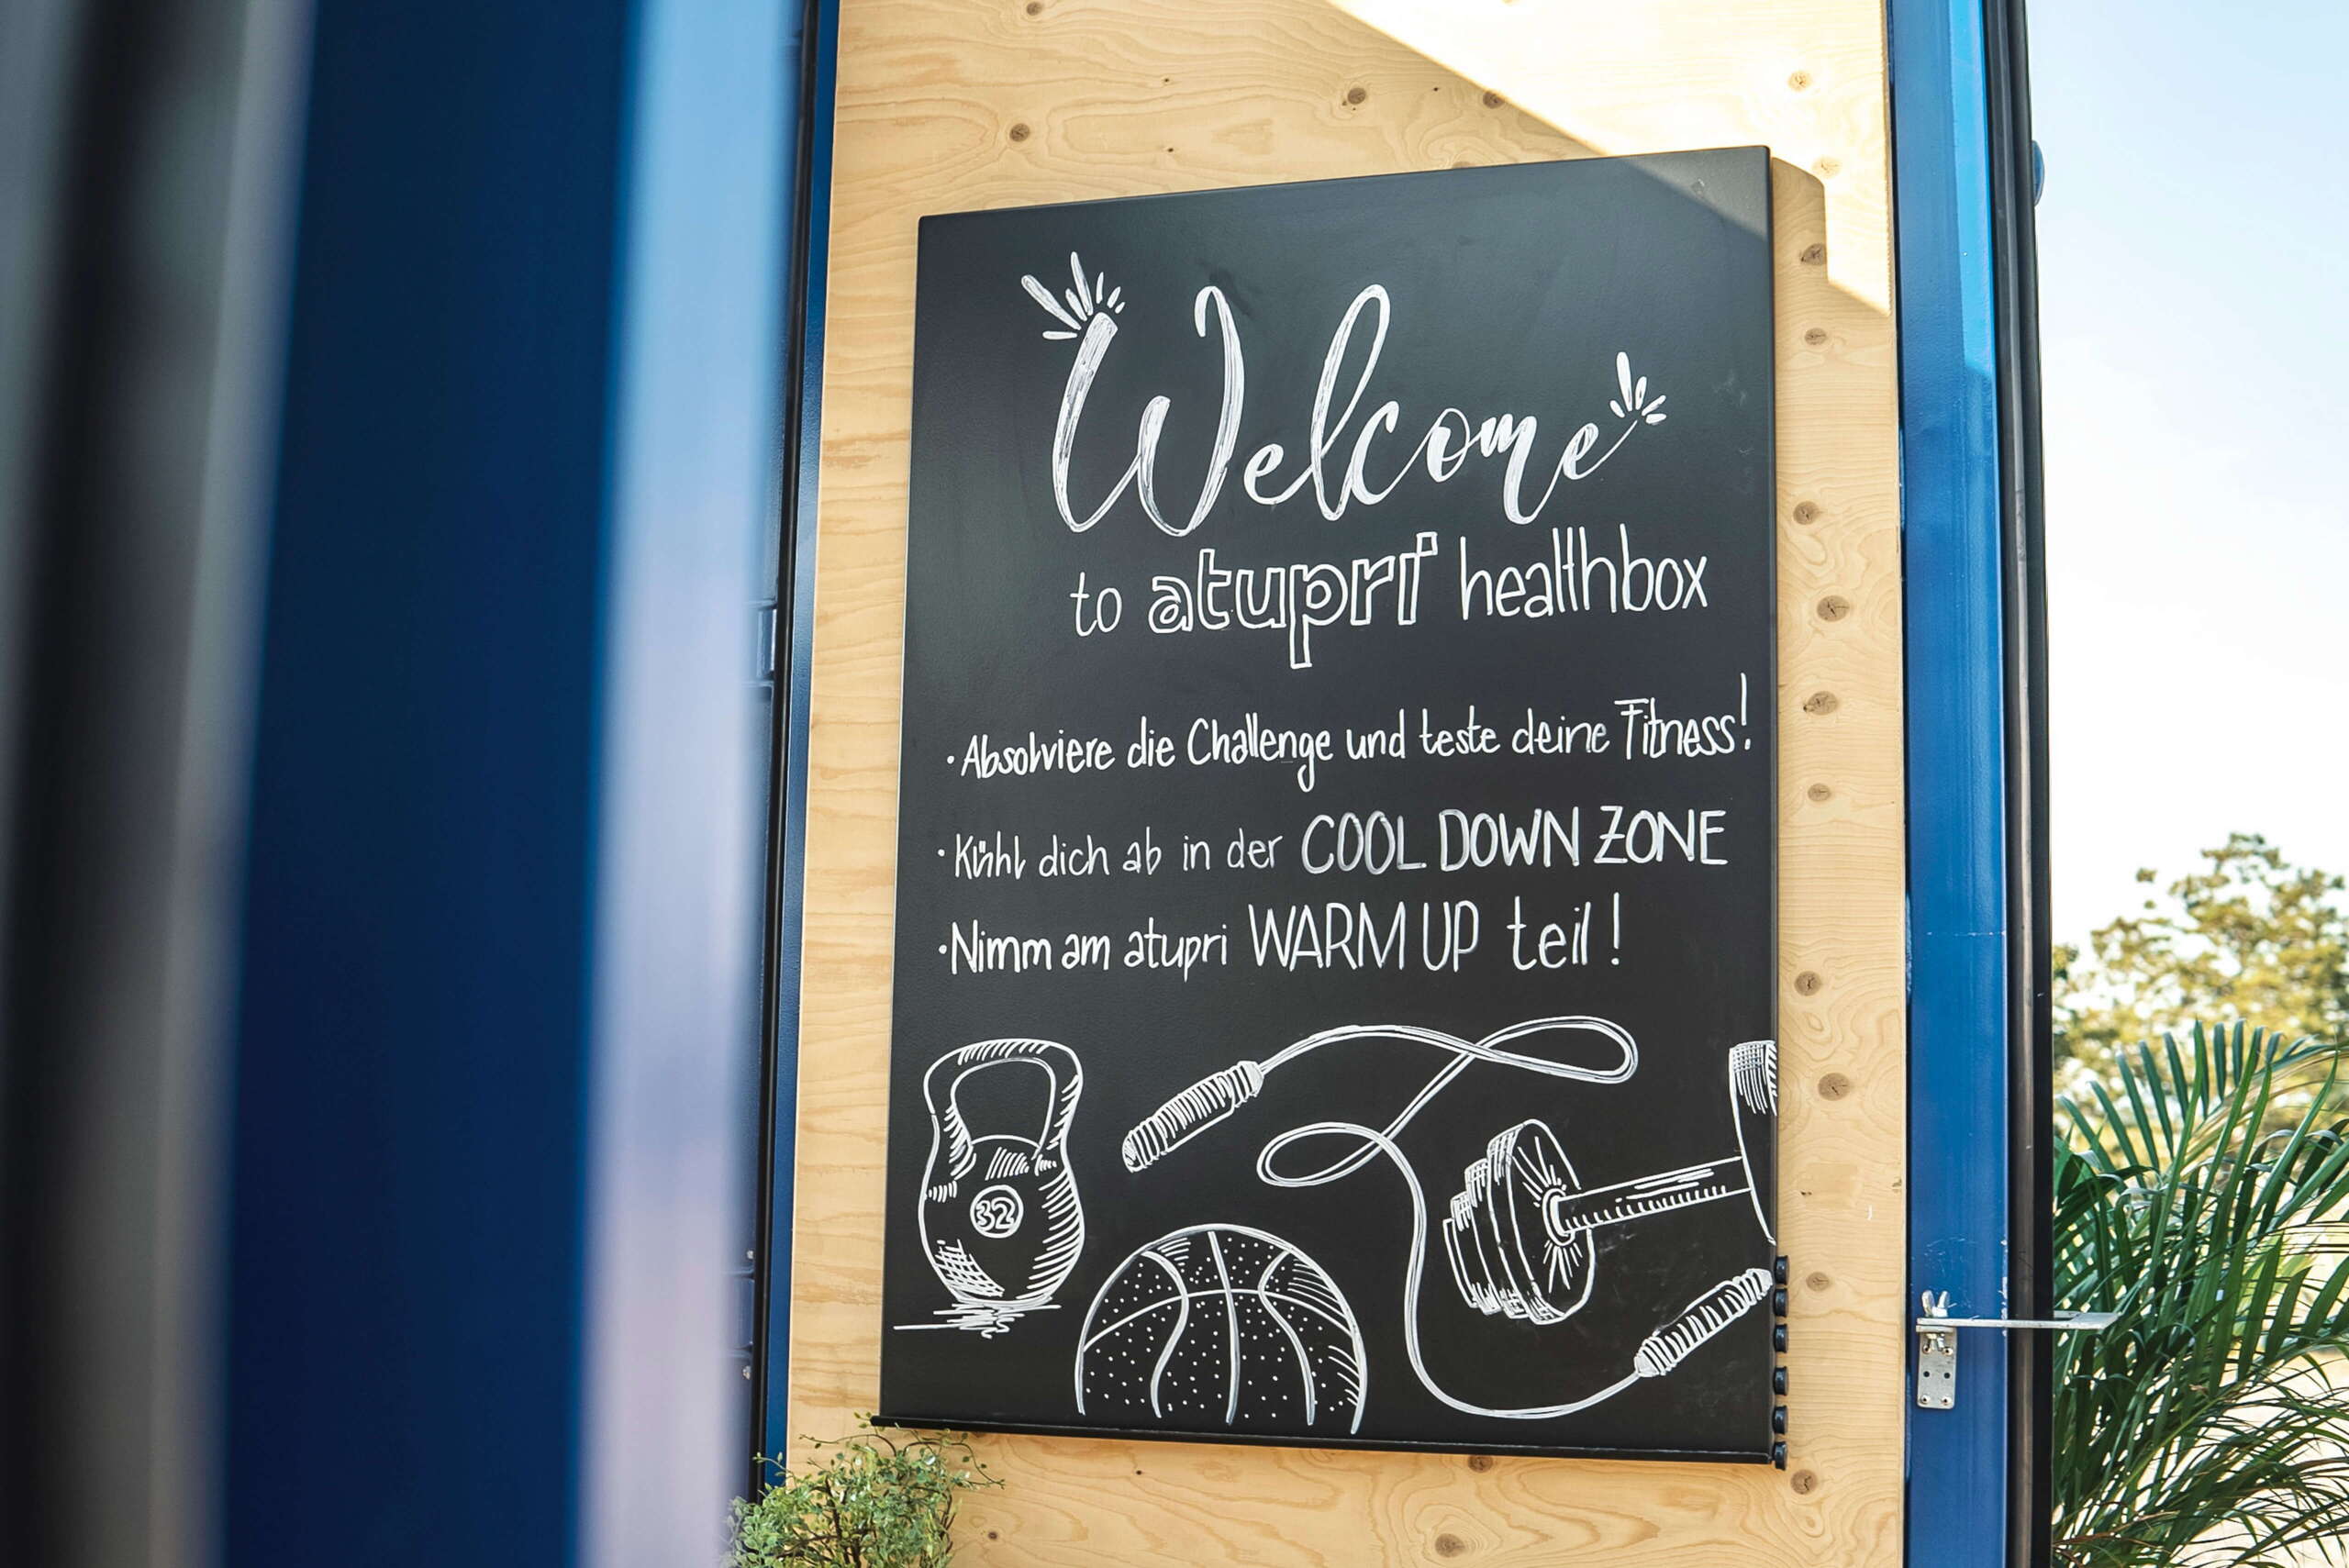 Welcome
to atupri healthbox
· Absolviere die Challenge und teste deine Fitness!
· Kühl dich ab in der COOL DOWN ZONE
· Nimm am atupri WARM UP teil!
32